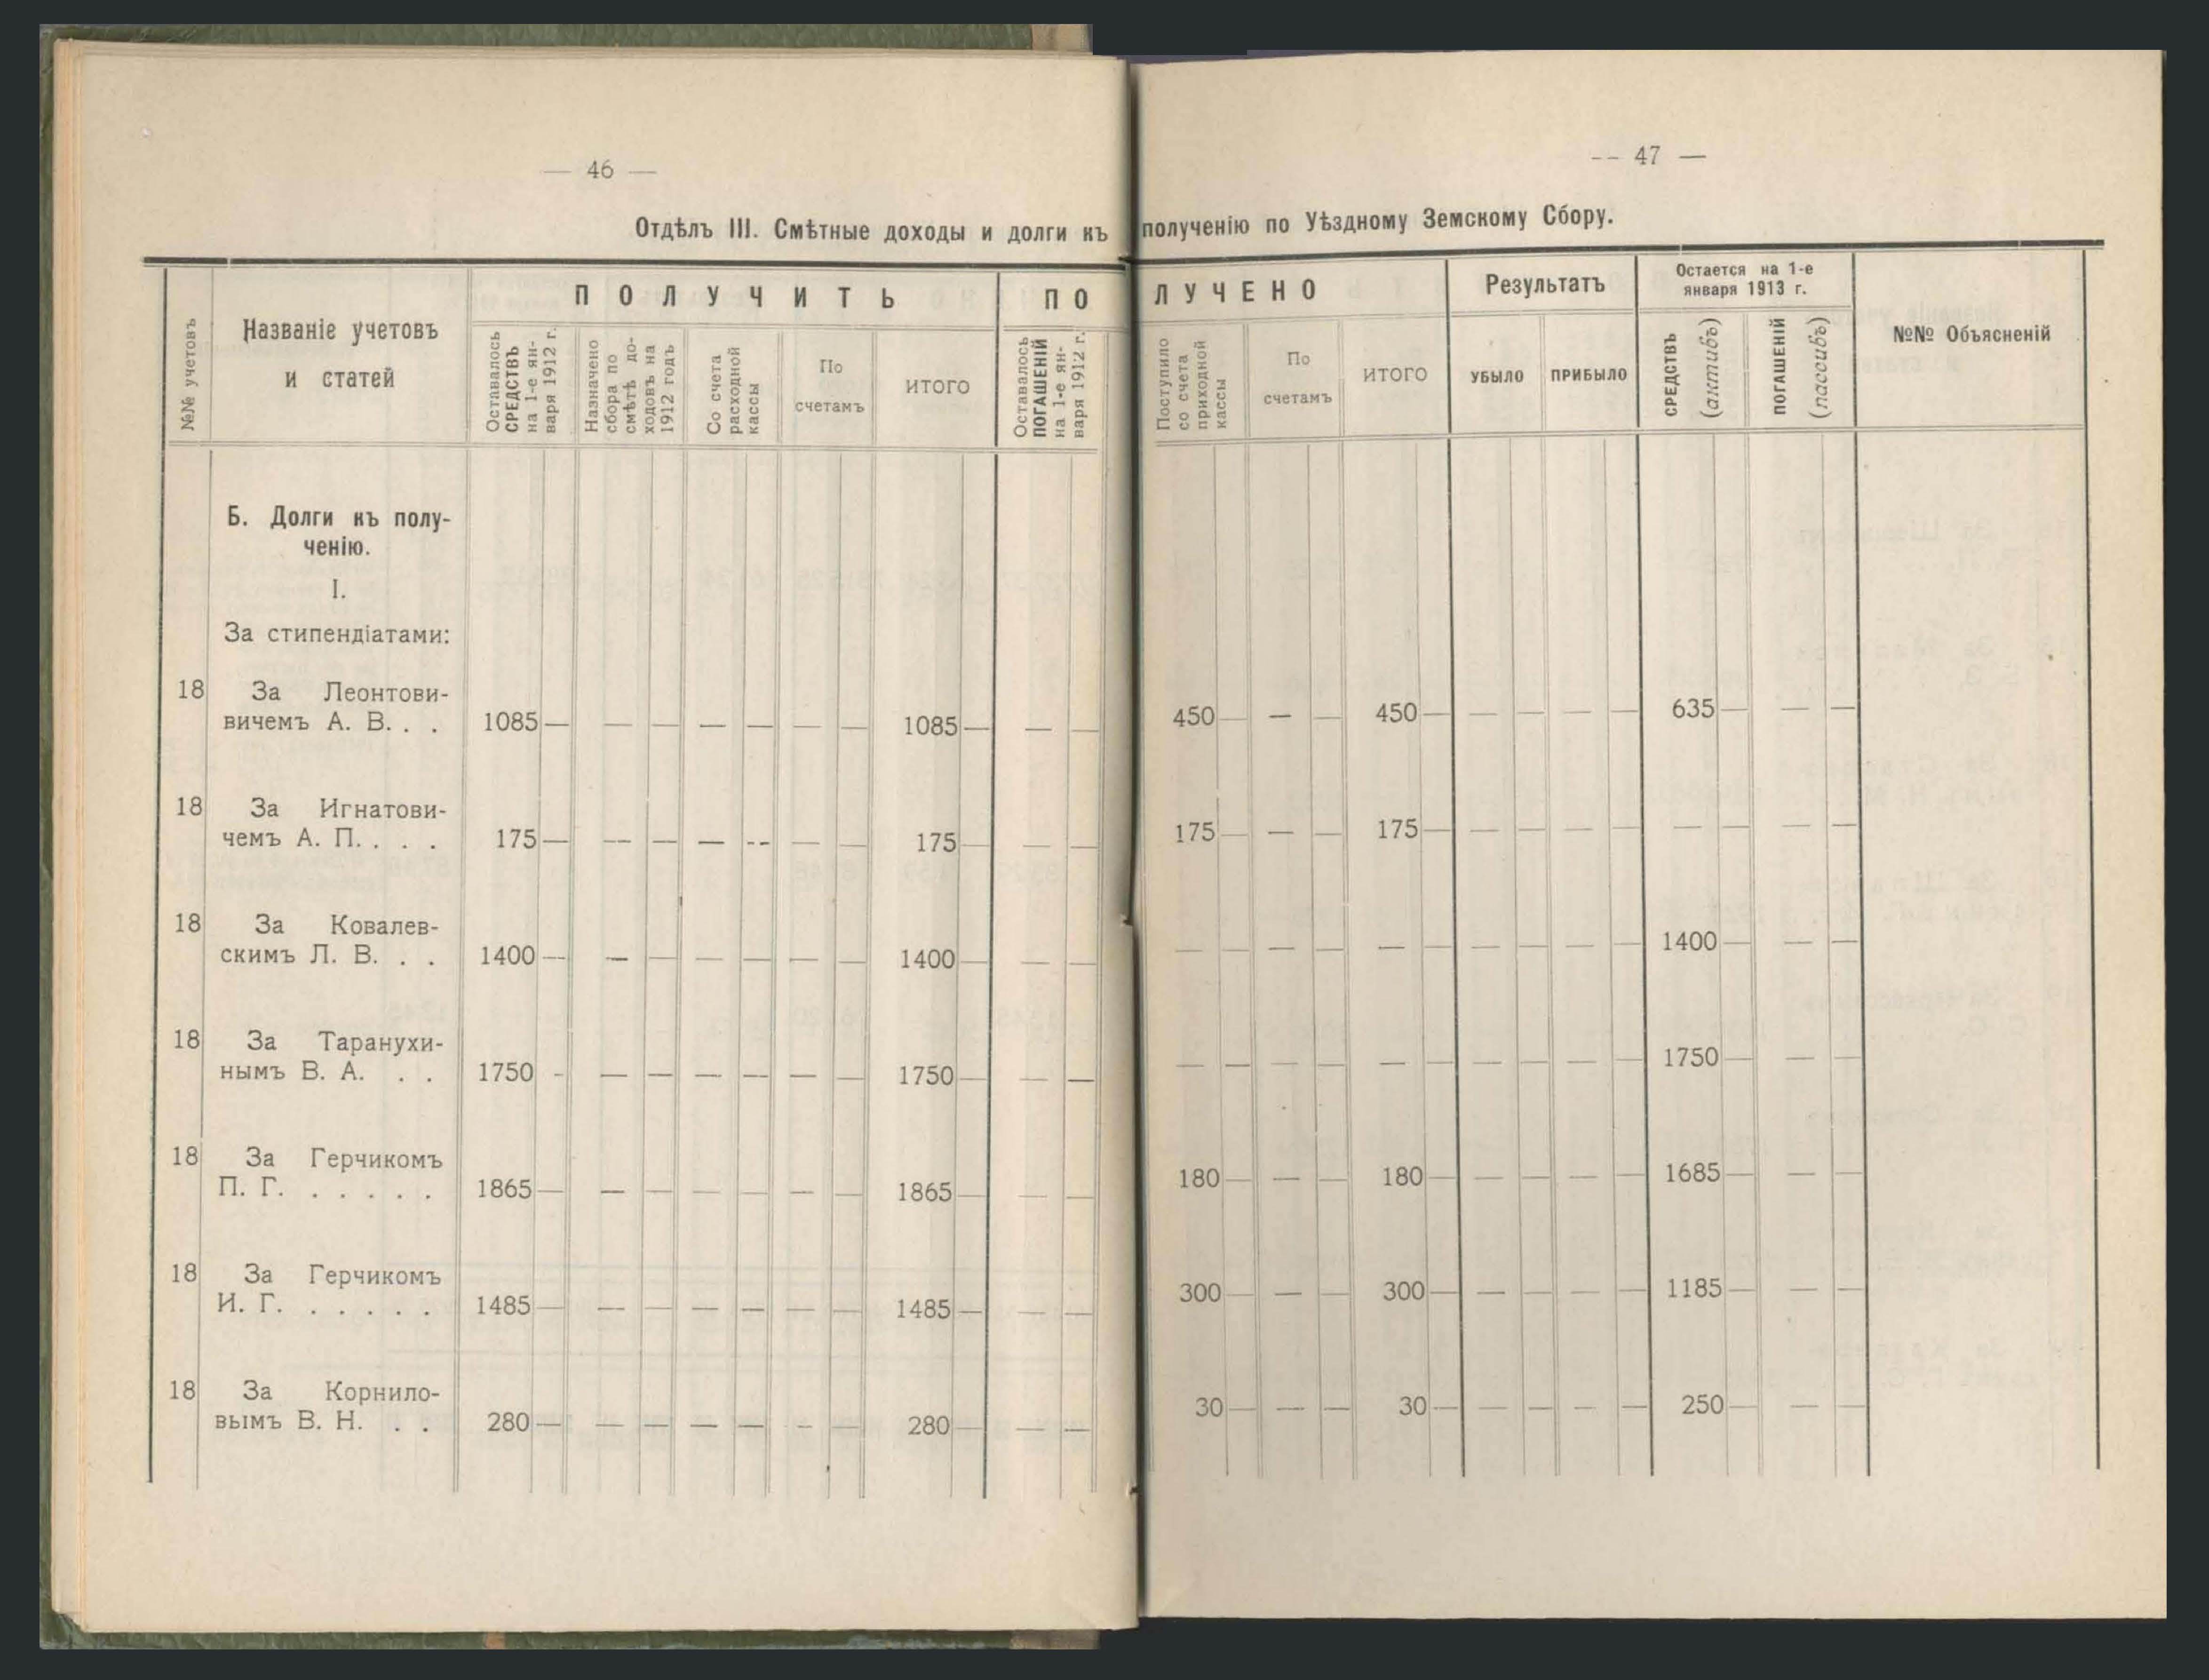 — 46 —
-- 47 —
Отдѣлъ III. Смѣтные доходы и долги къ полученію по Уѣздному Земскому Сбору.
№№ учетовъ
Названіе учетовъ
и статей
ПОЛУЧИТЬ
Оставалось
СРЕДСТВЪ
на 1-е ян-
варя 1912 г.
Назначено
сбора по
смѣтѣ до-
ходовъ на
1912 годъ
Со счета
расходной
кассы
По
счетамъ
ИТОГО
ПОЛУЧЕНО
Оставалось
ПОГАШЕНІЙ
на 1-е ян-
варя 1912 г.
Поступило
со счета
приходной
кассы
По
счетамъ
ИТОГО
Результатъ
УБЫЛО
ПРИБЫЛО
Остается на 1-е
января 1913 г.
СРЕДСТВЪ
(активъ)
ПОГАШЕНІЙ
(пассивъ)
№№ Объясненій
Б. Долги къ полу-
ченію.
I.
За стипендіатами:
18 За Леонтови-
вичемъ А. В. . . 1085 — — — — — — — 1085 — — — 450 — — — 450 — — — — — 635 — — —
18 За Игнатови-
чемъ А. П. . . . 175 — -- — — -- — — 175 — — — 175 — — — 175 — — — — — — — — —
18 За Ковалев-
скимъ Л. В. . . 1400 — — — — — — — 1400 — — — — — — — — — — — — — 1400 — — —
18 За Таранухи-
нымъ В. А. . . 1750 - — — — — — — 1750 — — — — — — — — — — — — — 1750 — — —
18 За Герчикомъ
П. Г. . . . . . 1865 — — — — — — — 1865 — — — 180 — — — 180 — — — — — 1685 — — —
18 За Герчикомъ
И. Г. . . . . . 1485 — — — — — — — 1485 — — — 300 — — — 300 — — — — — 1185 — — —
18 За Корнило-
вымъ В. Н. . . 280 — — — — — -- — 280 — — — 30 — — — 30 — — — — — 250 — — —